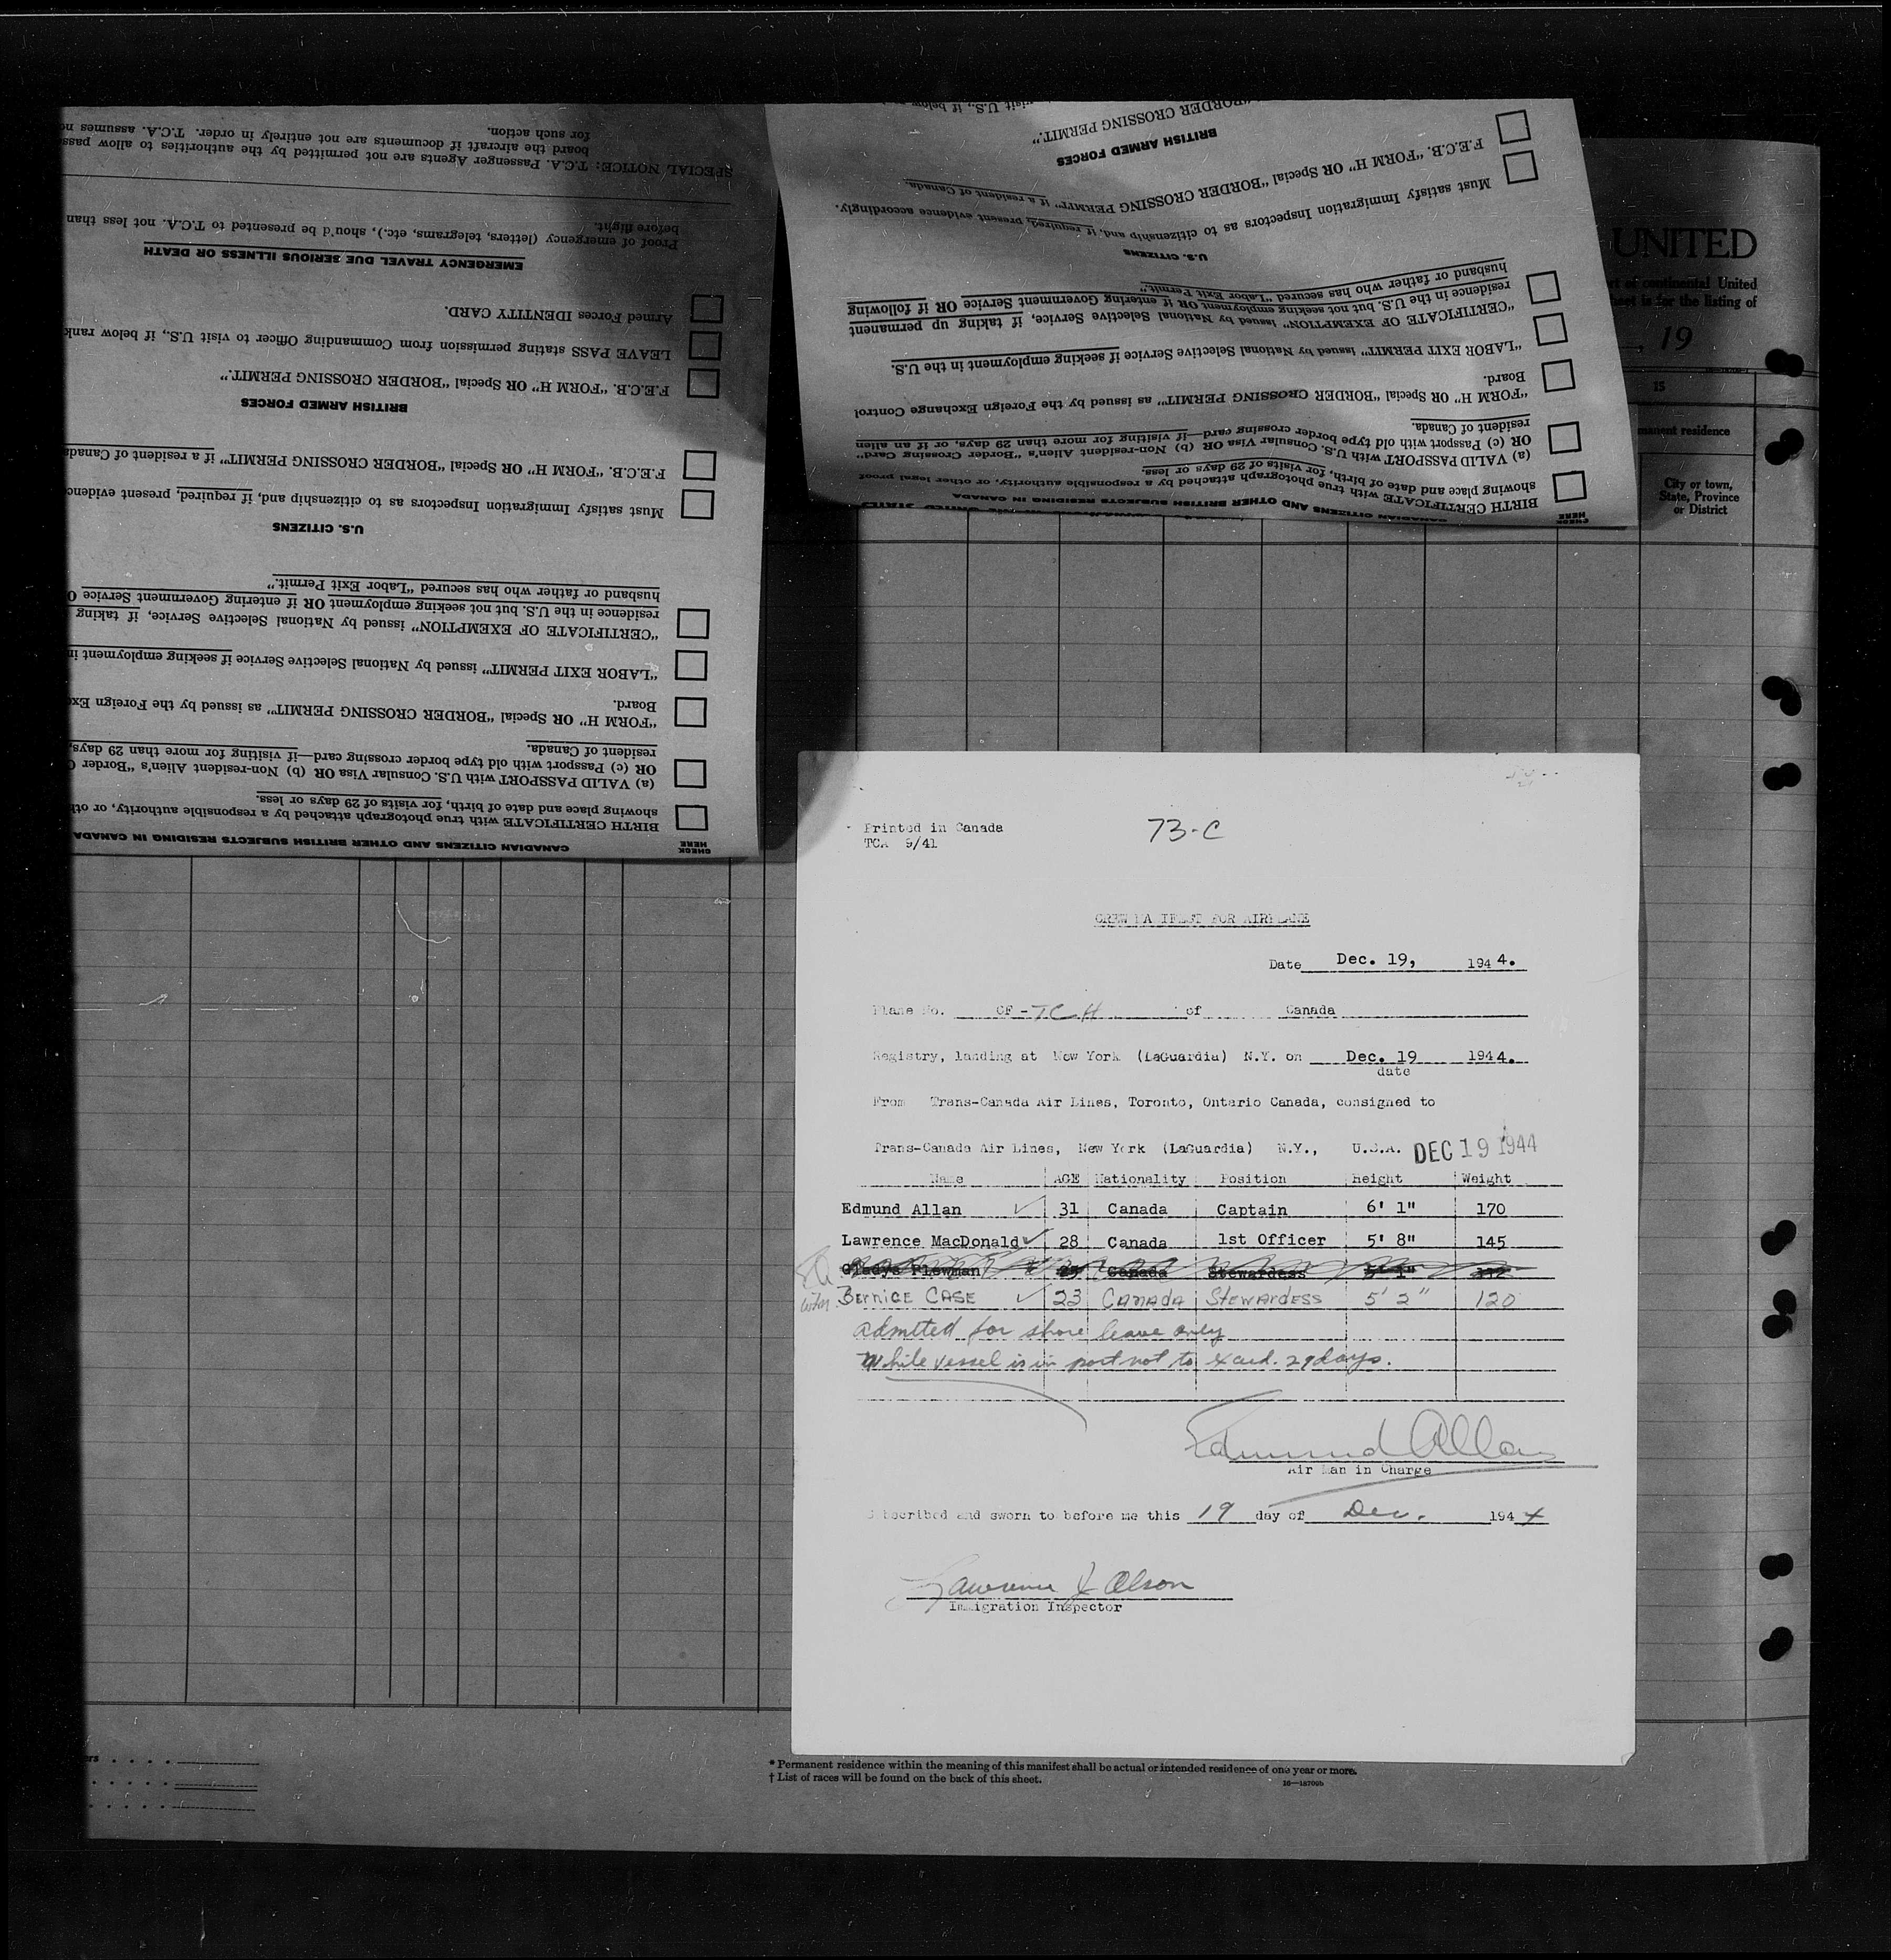 for such action.
board the aircraft if documents are not entirely in order. T.C.A. assumes
SPECIAL NOTICE: T.C.A. Passenger Agents are not permitted by the authorities to allow
before flight.
Proof of emergency (letters, telegrams, etc.), should be presented to T.C.A. not less than
EMERGENCY TRAVEL DUE SERIOUS ILLNESS OR DEATH
Armed Forces IDENTITY CARD.
LEAVE PASS stating permission from Commanding Officer to visit U.S., if below rank
F.E.C.B. "FORM H" OR Special "BORDER CROSSING PERMIT."
BRITISH ARMED FORCES
F.E.C.B. "FORM H" OR Special "BORDER CROSSING PERMIT" if a resident of Canada
Must satisfy Immigration Inspectors as to citizenship and, if required, present evidence
U.S. CITIZENS
husband or father who has secured "Labor Exit Permit."
residence in the U.S. but not seeking employment OR if entering Government Service
"CERTIFICATE OF EXEMPTION" issued by National Selective Service, if taking
"LABOR EXIT PERMIT" issued by National Selective Service if seeking employment in
Board.
"FORM H" OR Special "BORDER CROSSING PERMIT" as issued by the Foreign
resident of Canada.
OR (c) Passport with old type border crossing card—if visiting for more than 29 days,
(a) VALID PASSPORT with U.S. Consular Visa OR (b) Non-resident Alien's "Border
showing place and date of birth, for visits of 29 days or less.
BIRTH CERTIFICATE with true photograph attached by a responsible authority, or
CANADIAN CITIZENS AND OTHER BRITISH SUBJECTS RESIDING IN CANADA
CHECK HERE
visit U.S., if below
"BORDER CROSSING PERMIT."
BRITISH ARMED FORCES
F.E.C.B. "FORM H" OR Special "BORDER CROSSING PERMIT" if a resident of Canada.
Must satisfy Immigration Inspectors as to citizenship and, if required, present evidence accordingly.
U.S. CITIZENS
husband or father who has secured "Labor Exit Permit."
residence in the U.S. but not seeking employment OR if entering Government Service OR if following
"CERTIFICATE OF EXEMPTION" issued by National Selective Service, if taking up permanent
"LABOR EXIT PERMIT" issued by National Selective Service if seeking employment in the U.S.
Board.
"FORM H" OR Special "BORDER CROSSING PERMIT" as issued by the Foreign Exchange Control
resident of Canada.
OR (c) Passport with old type border crossing card—if visiting for more than 29 days, or if an alien
(a) VALID PASSPORT with U.S. Consular Visa OR (b) Non-resident Alien's "Border Crossing Card."
showing place and date of birth, for visits of 29 days or less.
BIRTH CERTIFICATE with true photograph attached by a responsible authority, or other legal proof
CANADIAN CITIZENS AND OTHER BRITISH SUBJECTS RESIDING IN CANADA
CHECK HERE
UNITED
of continental United
sheet is for the listing of
, 19
15
permanent residence
City or town,
State, Province
or District
Printed in Canada
TCA 9/41
73-C
CREW MANIFEST FOR AIRPLANE
Date Dec. 19, 1944.
Plane No. CF-TCH of Canada
Registry, landing at New York (LaGuardia) N.Y. on Dec. 19 1944.
date
From Trans-Canada Air Lines, Toronto, Ontario Canada, consigned to
Trans-Canada Air Lines, New York (LaGuardia) N.Y., U.S.A. DEC 19 1944
Name AGE Nationality Position Height Weight
Edmund Allan 31 Canada Captain 6' 1" 170
Lawrence MacDonald 28 Canada 1st Officer 5' 8" 145
Gladys Plewman 25 Canada Stewardess 5' 1"
Bernice Case 23 Canada Stewardess 5' 2" 120
admitted for shore leave only
While vessel is in port not to exceed. 29 days.
Edmund Allan
Air Man in Charge
Subscribed and sworn to before me this 19 day of Dec. 1944
Lawrence J Olson
Immigration Inspector
* Permanent residence within the meaning of this manifest shall be actual or intended residence of one year or more.
† List of races will be found on the back of this sheet.
16—18700b